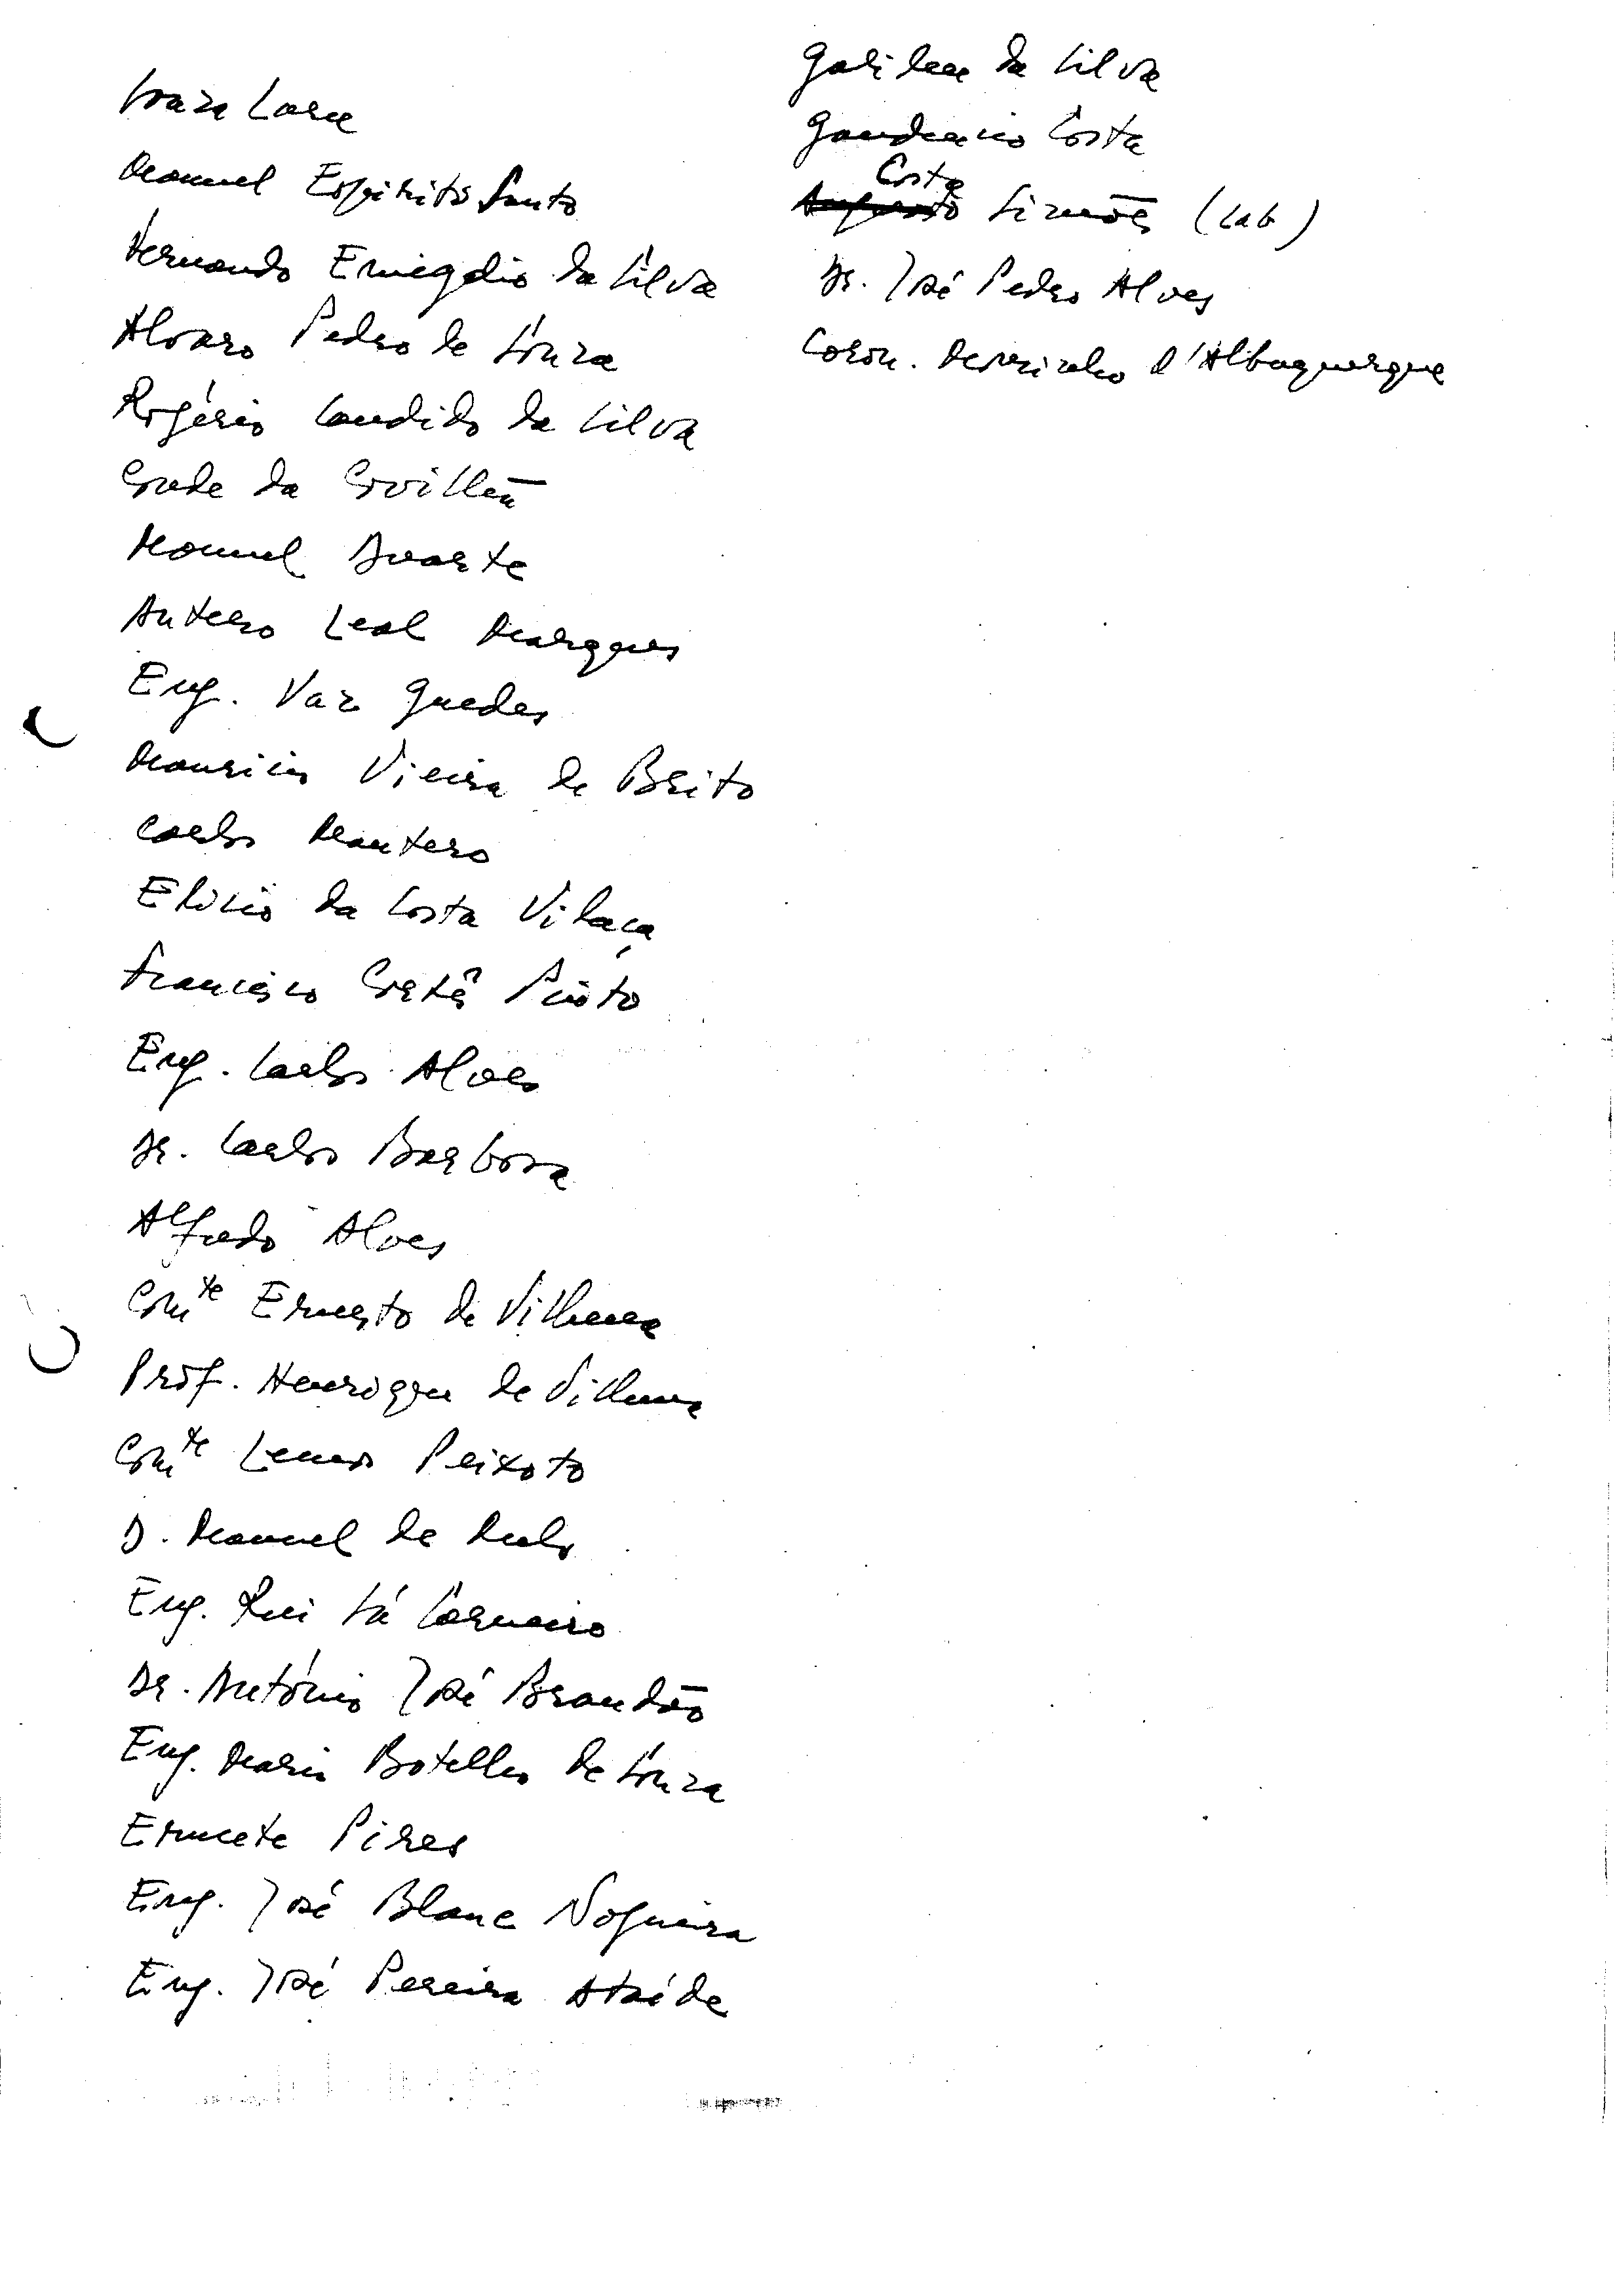 Souza Lara
Manuel Espirito Santo
Fernando Emigdio da Silva
Alvaro Pedro de Souza
Rogério Candido da Silva
Conde da Covilhã
Manuel Duarte
Antero Leal Marques
Eng. Vaz Guedes
Mauricio Vieira de Brito
Carlos Mantero
Elisio da Costa Vilaça
Francisco Cortês Pinto
Eng. Carlos Alves
Dr. Carlos Barbosa
Alfredo Alves
Comte Ernesto de Vilhena
Prof. Henrique de Vilhena
Comte Lemos Peixoto
D. Manuel de Melo
Eng. Rui Sá Carneiro
Dr. António José Brandão
Eng. Mario Botelho de Souza
Ermete Pires
Eng. José Blanc Nogueira
Eng. José Pereira Ataíde
da Silva
Gaudencio Costa
Costa
Augusto Simões (Cab)
Dr. José Pedro Alves
Coron. d'Albuquerque